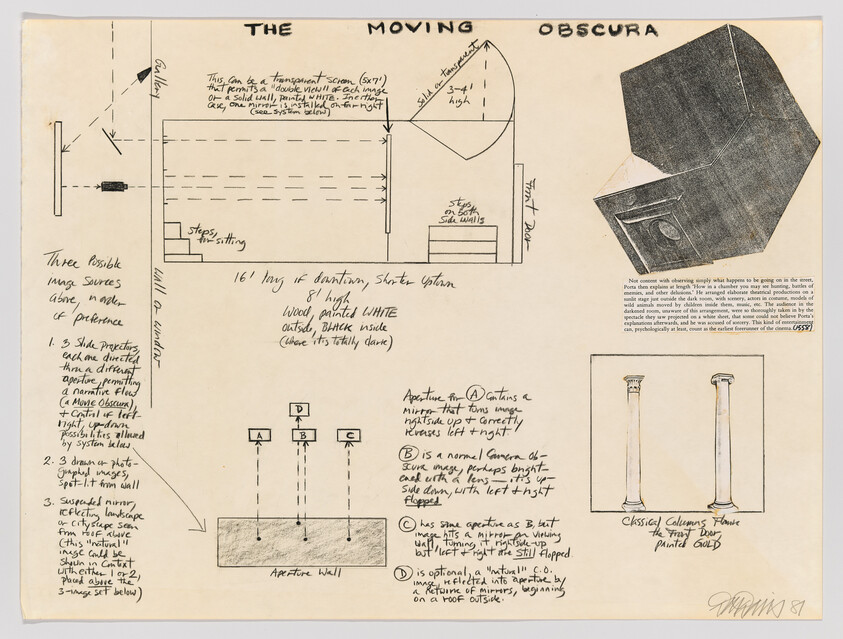 THE MOVING OBSCURA
This can be a transparent screen (5x7')
that permits a "double view" of each image
or a solid wall, painted WHITE. In either
case, one mirror is installed on far right
(see system below)
Solid or transparent
3-4'
high
Gallery
wall or window
Steps
on Both
Side Walls
Front Door
Steps,
for sitting
16' long if downtown, shorter uptown
8' high
Wood, painted WHITE
outside, BLACK inside
(where it is totally dark)
Three Possible
Image Sources
Above, in order
of preference
1. 3 Slide Projectors,
each one directed
thru a different
aperture, permitting
a narrative flow
(a Movie Obscura),
+ Control of left-
right, up-down
possibilities allowed
by system below
2. 3 drawn or photo-
graphed images,
spot-lit from wall
3. Suspended mirror,
reflecting landscape
or cityscape seen
from roof above
(this "natural"
image could be
shown in context
with either 1 or 2,
placed above the
3-image set below)
Not content with observing simply what happens to be going on in the street,
Porta then explains at length 'How in a chamber you may see hunting, battles of
enemies, and other delusions.' He arranged elaborate theatrical productions on a
sunlit stage just outside the dark room, with scenery, actors in costume, models of
wild animals moved by children inside them, music, etc. The audience in the
darkened room, unaware of this arrangement, were so thoroughly taken in by the
spectacle they saw projected on a white sheet, that some could not believe Porta's
explanations afterwards, and he was accused of sorcery. This kind of entertainment
can, psychologically at least, count as the earliest forerunner of the cinema. (1558)
D
A
B
C
Aperture Wall
Aperture for A contains a
mirror that turns image
rightside up + correctly
reverses left + right
B is a normal Camera Ob-
scura image, perhaps bright-
ened with a lens — it is up-
side down, with left + right
flopped
C has same aperture as B, but
image hits a mirror on viewing
wall, turning it rightside-up
but left + right are still flopped.
D is optional, a "natural" C.O.
image, reflected into aperture by
a network of mirrors, beginning
on a roof outside.
Classical Columns Flank
the Front Door,
painted GOLD
81